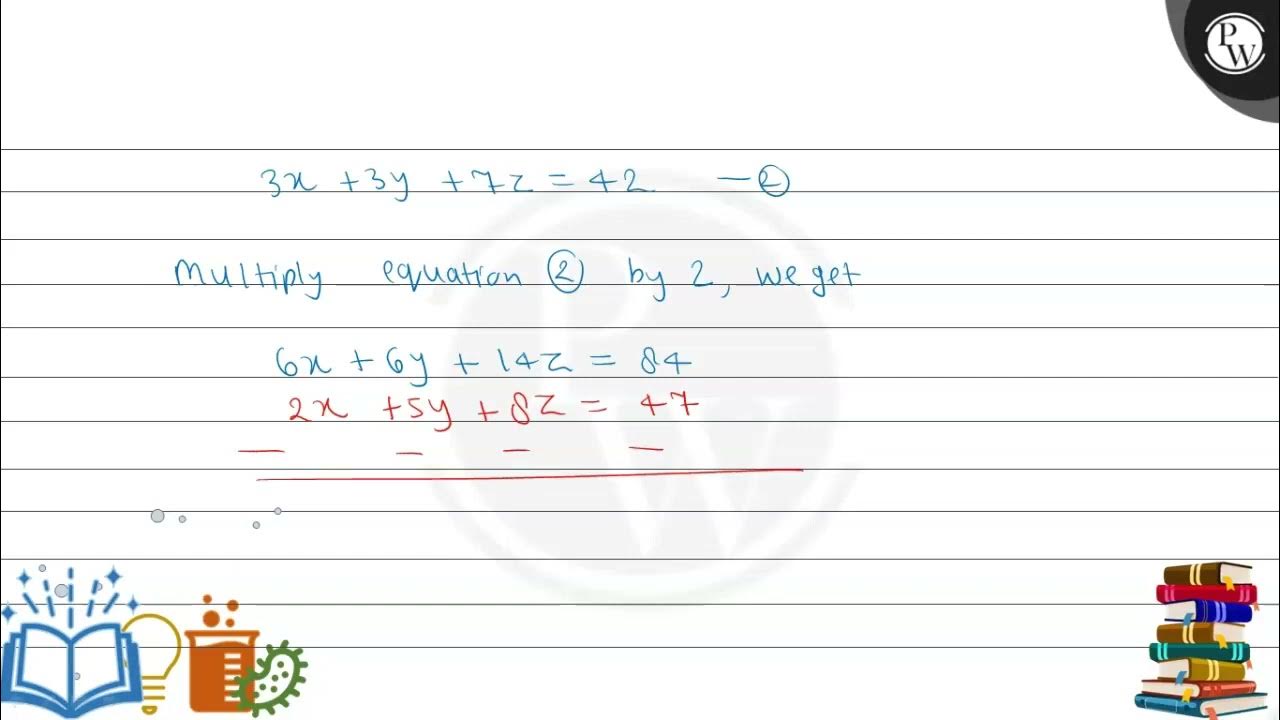 PW
3x + 3y + 7z = 42 — ②
Multiply equation ② by 2, we get
6x + 6y + 14z = 84
2x + 5y + 8z = 47
— — — —